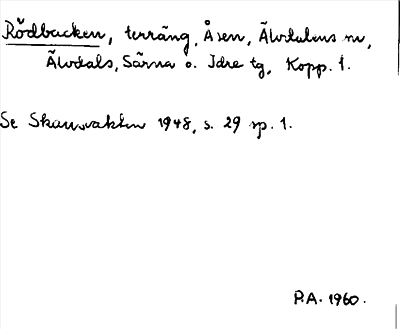 Rödbacken, terräng, Åsen, Älvdalens sn,
Älvdals, Särna o. Idre tg, Kopp. l.
Se Skansvakten 1948, s. 29 sp. 1.
P.A. 1960.